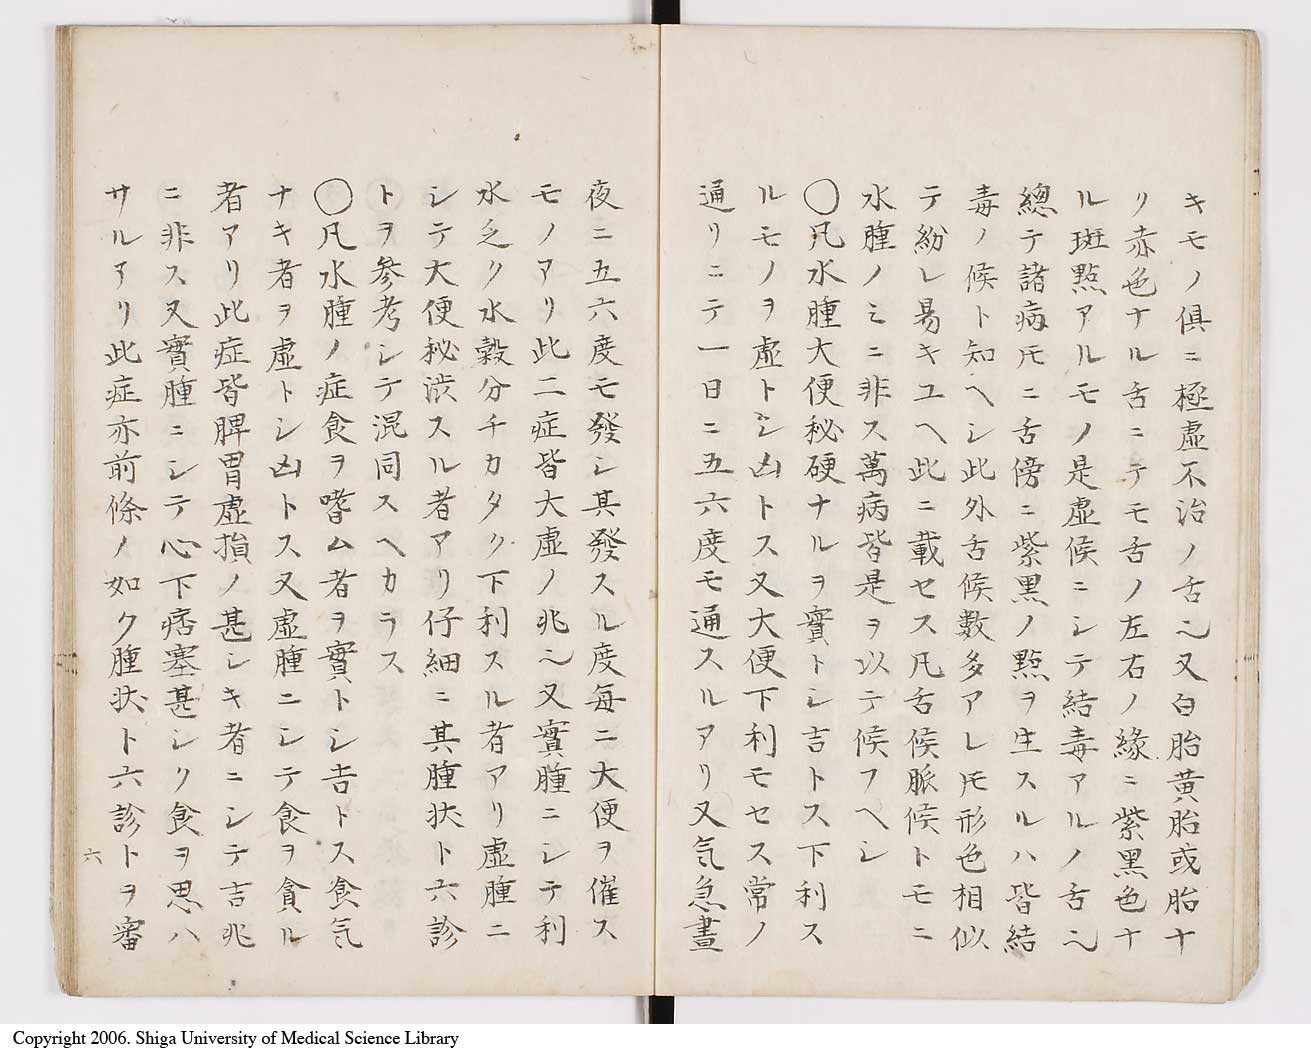 キモノ俱ニ極虛不治ノ舌也又白胎黄胎或胎ナ
リ赤色ナル舌ニテモ舌ノ左右ノ縁ニ紫黑色ナ
ル斑點アルモノ是虛候ニシテ結毒アルノ舌也
總テ諸病𪜈ニ舌傍ニ紫黑ノ㸃ヲ生スルハ皆結
毒ノ候ト知ヘシ此外舌候數多アレ𪜈形色相似
テ紛レ易キユヘ此ニ載セス凡舌候脈候トモニ
水腫ノミニ非ス萬病皆是ヲ以テ候フヘシ
〇凡水腫大便秘硬ナルヲ實トシ吉トス下利ス
ルモノヲ虛トシ凶トス又大便下利モセス常ノ
通リニテ一日ニ五六度モ通スルアリ又気急晝
夜ニ五六度モ發シ其發スル度每ニ大便ヲ催ス
モノアリ此二症皆大虛ノ兆也又實腫ニシテ利
水乏ク水穀分チカタク下利スル者アリ虛腫ニ
シテ大便秘渋スル者アリ仔細ニ其腫状ト六診
トヲ參考シテ混同スヘカラス
〇凡水腫ノ症食ヲ嗜ム者ヲ實トシ吉トス食気
ナキ者ヲ虛トシ凶トス又虛腫ニシテ食ヲ貪ル
者アリ此症皆脾胃虛損ノ甚シキ者ニシテ吉兆
ニ非ス又實腫ニシテ心下痞塞甚シク食ヲ思ハ
サルアリ此症亦前條ノ如ク腫状ト六診トヲ審
六
Copyright 2006. Shiga University of Medical Science Library